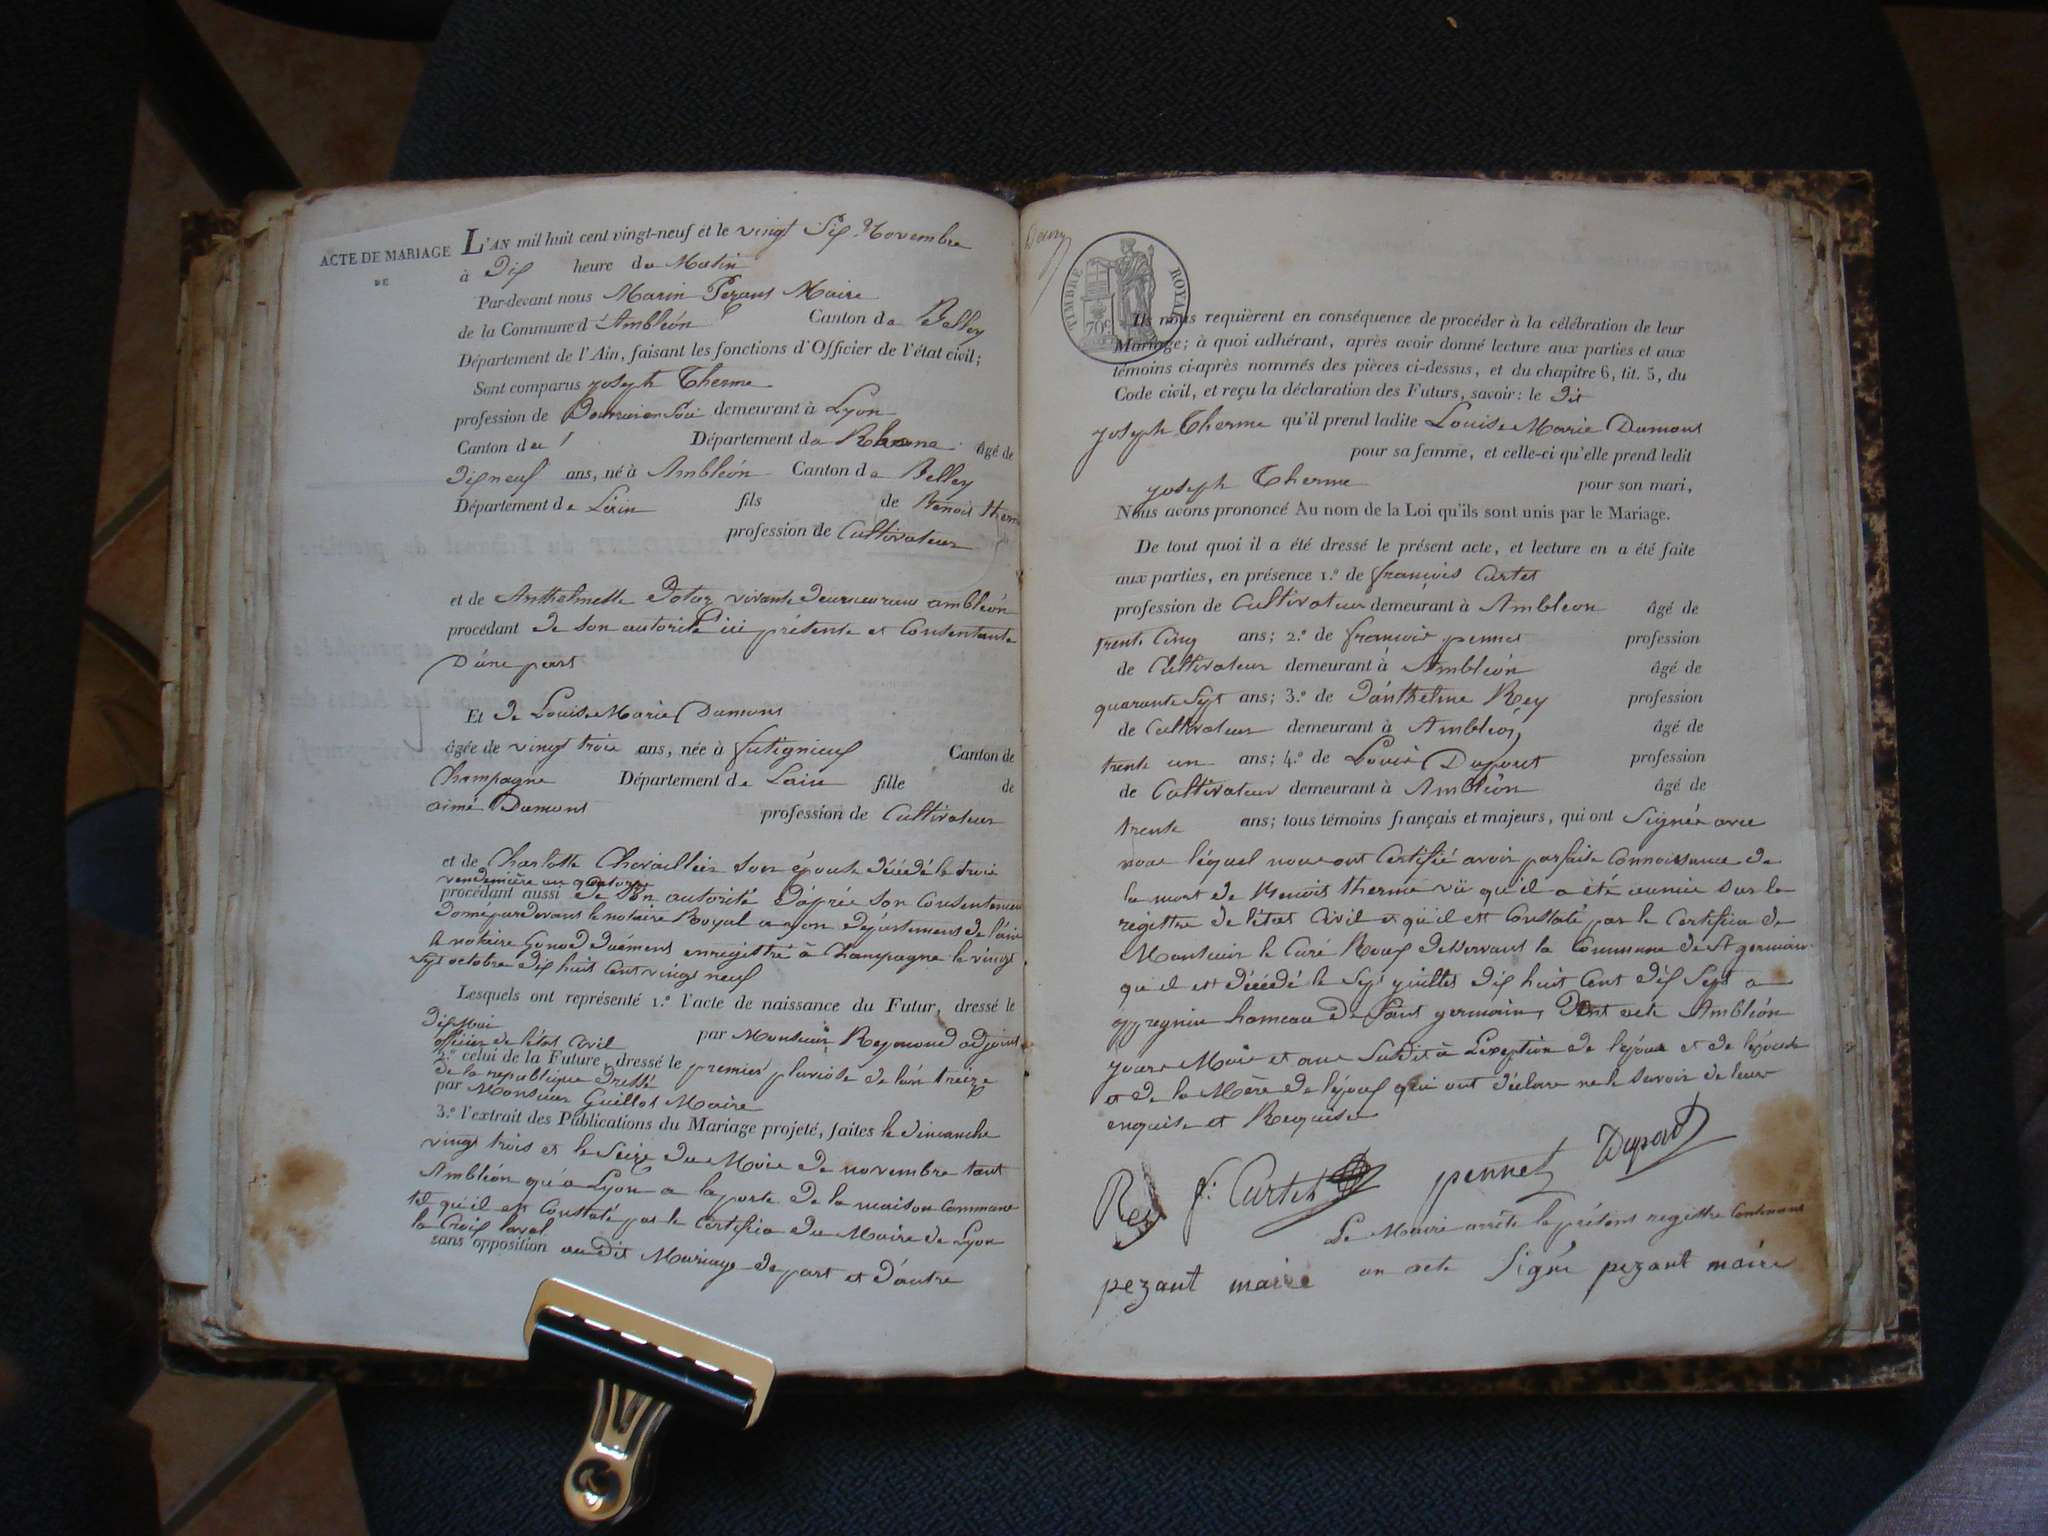 ACTE DE MARIAGE
DE
L'AN mil huit cent vingt-neuf et le vingt Six Novembre
à Dix heure du Matin
Par-devant nous Marin Pezant Maire
de la Commune d'Ambléon Canton de Belley
Département de l'Ain, faisant les fonctions d'Officier de l'état civil;
Sont comparus joseph Therme
profession de demeurant à Lyon
Canton de Département de Rhone âgé de
Dix neuf ans, né à Ambléon Canton de Belley
Département de Lain fils de Benoit therme
profession de Cultivateur
et de Anthelmette vivante demeurant ambléon
procédant de son autorité ici présente et Consentante
D'une part
Et de Louise Marie Dumont
âgée de vingt trois ans, née à Canton de
Champagne Département de Lain fille de
aimé Dumont profession de Cultivateur
et de Charlotte Chevaillier son épouse décédé le trois
vendemière an quatorze
procédant aussi de Son autorité D'aprée Son Consentement
Donné pardevant le notaire Royal a Département de l'ain
notaire enregistré à Champagne le vingt
sept octobre dix huit Cent vingt neuf
Lesquels ont représenté 1.º l'acte de naissance du Futur, dressé le
Dix Mai par Monsieur Reymond adjoint
officier de létat Civil
2.º celui de la Future, dressé le premier pluviose de l'an treize
de la republique Dressé
par Monsieur Guillot Maire
3.º l'extrait des Publications du Mariage projeté, faites le dimanche
vingt trois et le Seize du Mois de novembre tant
Ambléon qu'à Lyon a la porte de la maison Commune
tel qu'il est Constaté par le Certifia du Maire de Lyon
la Croix laval
sans opposition au dit Mariage de part et d'autre
TIMBRE ROYAL
70c
Ils nous requièrent en conséquence de procéder à la célébration de leur
Mariage; à quoi adhérant, après avoir donné lecture aux parties et aux
témoins ci-après nommés des pièces ci-dessus, et du chapitre 6, tit. 5, du
Code civil, et reçu la déclaration des Futurs, savoir: le Dit
joseph Therme qu'il prend ladite Louise Marie Dumont
pour sa femme, et celle-ci qu'elle prend ledit
joseph Therme pour son mari,
Nous avons prononcé Au nom de la Loi qu'ils sont unis par le Mariage.
De tout quoi il a été dressé le présent acte, et lecture en a été faite
aux parties, en présence 1.º de françois Curtet
profession de Cultivateur demeurant à Ambléon âgé de
trente Cinq ans; 2.º de françois pennet profession
de Cultivateur demeurant à Ambléon âgé de
quarante Sept ans; 3.º de D'anthelme Rey profession
de Cultivateur demeurant à Ambléon âgé de
trente un ans; 4.º de Louis Dupont profession
de Cultivateur demeurant à Ambléon âgé de
trente ans; tous témoins français et majeurs, qui ont Signée avec
nous léquel nous ont Certifié avoir parfaite Connoissance de
la mort de Benoit therme vü qu'il a été sur le
registre de létat Civil et qu'il est Constaté par le Certifia de
Monsieur le Curé Roux desservant la Commune de St germain
qu'il est décédé le Sept juillet dix huit Cent dix Sept a
hameau de Saint germain, Dont acte Ambléon
jour Mois et an Susdit à Lexeption de lépoux et de lépouse
et de la Mère de lépoux qui ont déclare ne le Savoir de leur
enquise et Requise
Rey f: Curtet pennet Dupont
Le Maire arrête le présent registre Contenant
pezant maire un acte Signé pezant maire